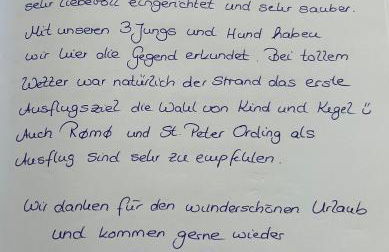 sehr liebevoll eingerichtet und sehr sauber.
Mit unseren 3 Jungs und Hund haben
wir hier die Gegend erkundet. Bei tollem
Wetter war natürlich der Strand das erste
Ausflugsziel die Wahl von Kind und Kegel ü
Auch Rømø und St. Peter Ording als
Ausflug sind sehr zu empfehlen.
Wir danken für den wunderschönen Urlaub
und kommen gerne wieder